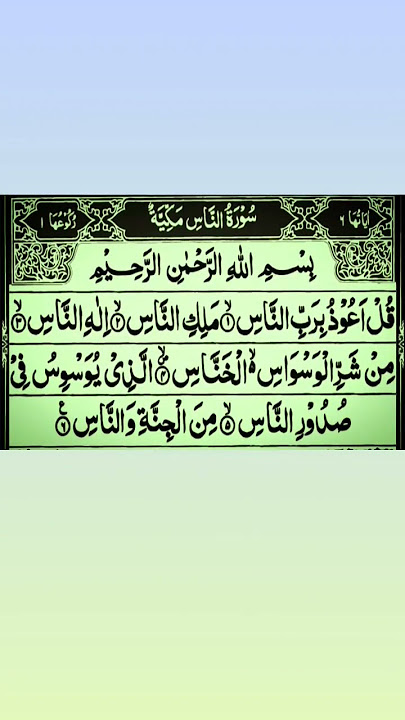 اٰيَاتُهَا ٦ سُوْرَةُ النَّاسِ مَكِّيَّةٌ رُكُوْعُهَا ١
بِسْمِ اللّٰهِ الرَّحْمٰنِ الرَّحِيْمِ
قُلْ اَعُوْذُ بِرَبِّ النَّاسِ ۙ﴿۱﴾ مَلِكِ النَّاسِ ۙ﴿۲﴾ اِلٰهِ النَّاسِ ۙ﴿۳﴾
مِنْ شَرِّ الْوَسْوَاسِ ۙ الْخَنَّاسِ ۪ۙ﴿۴﴾ الَّذِىْ يُوَسْوِسُ فِىْ
صُدُوْرِ النَّاسِ ۙ﴿۵﴾ مِنَ الْجِنَّةِ وَالنَّاسِ ﴿۶﴾ ع